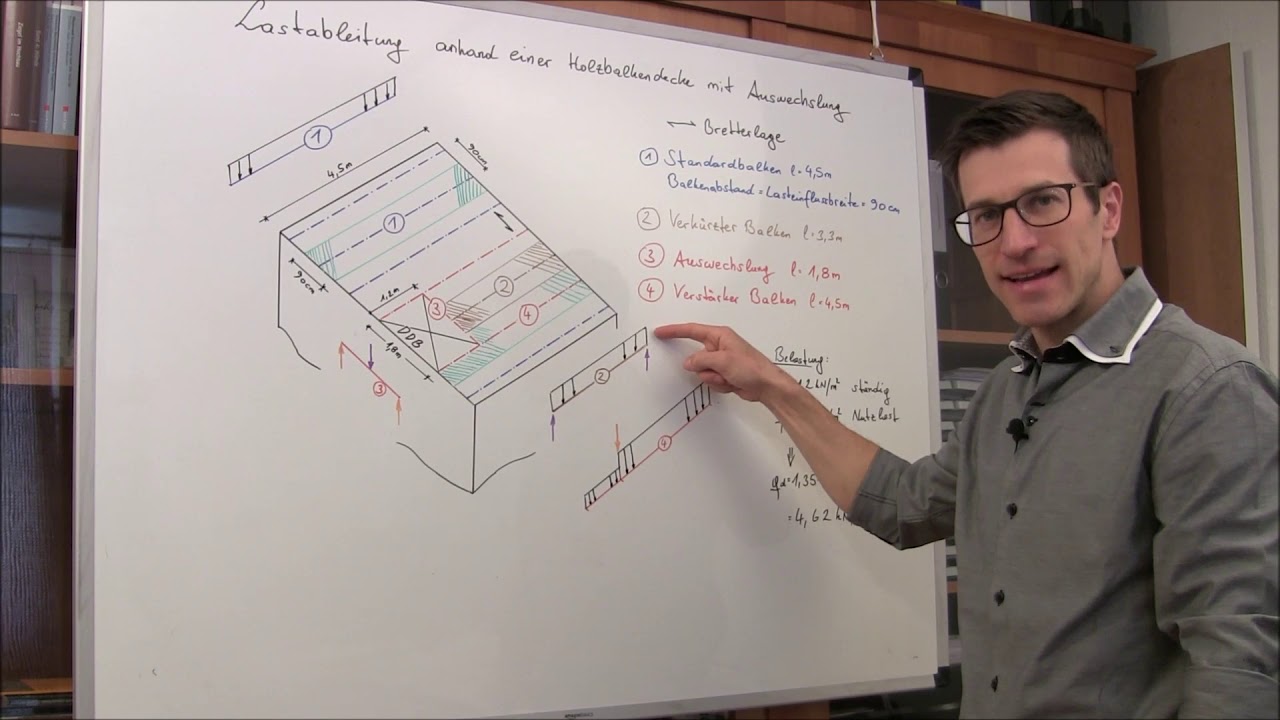 Lastableitung anhand einer Holzbalkendecke mit Auswechslung
Bretterlage
① Standardbalken l=4,5m
Balkenabstand = Lasteinflussbreite = 90cm
② Verkürzter Balken l=3,3m
③ Auswechslung l=1,8m
④ Verstärker Balken l=4,5m
Belastung:
ständig
Nutzlast
=1,35
=4,62 k
①
4,5m
90cm
①
90cm
1,2m
③
②
④
DDB
1,8m
③
②
④